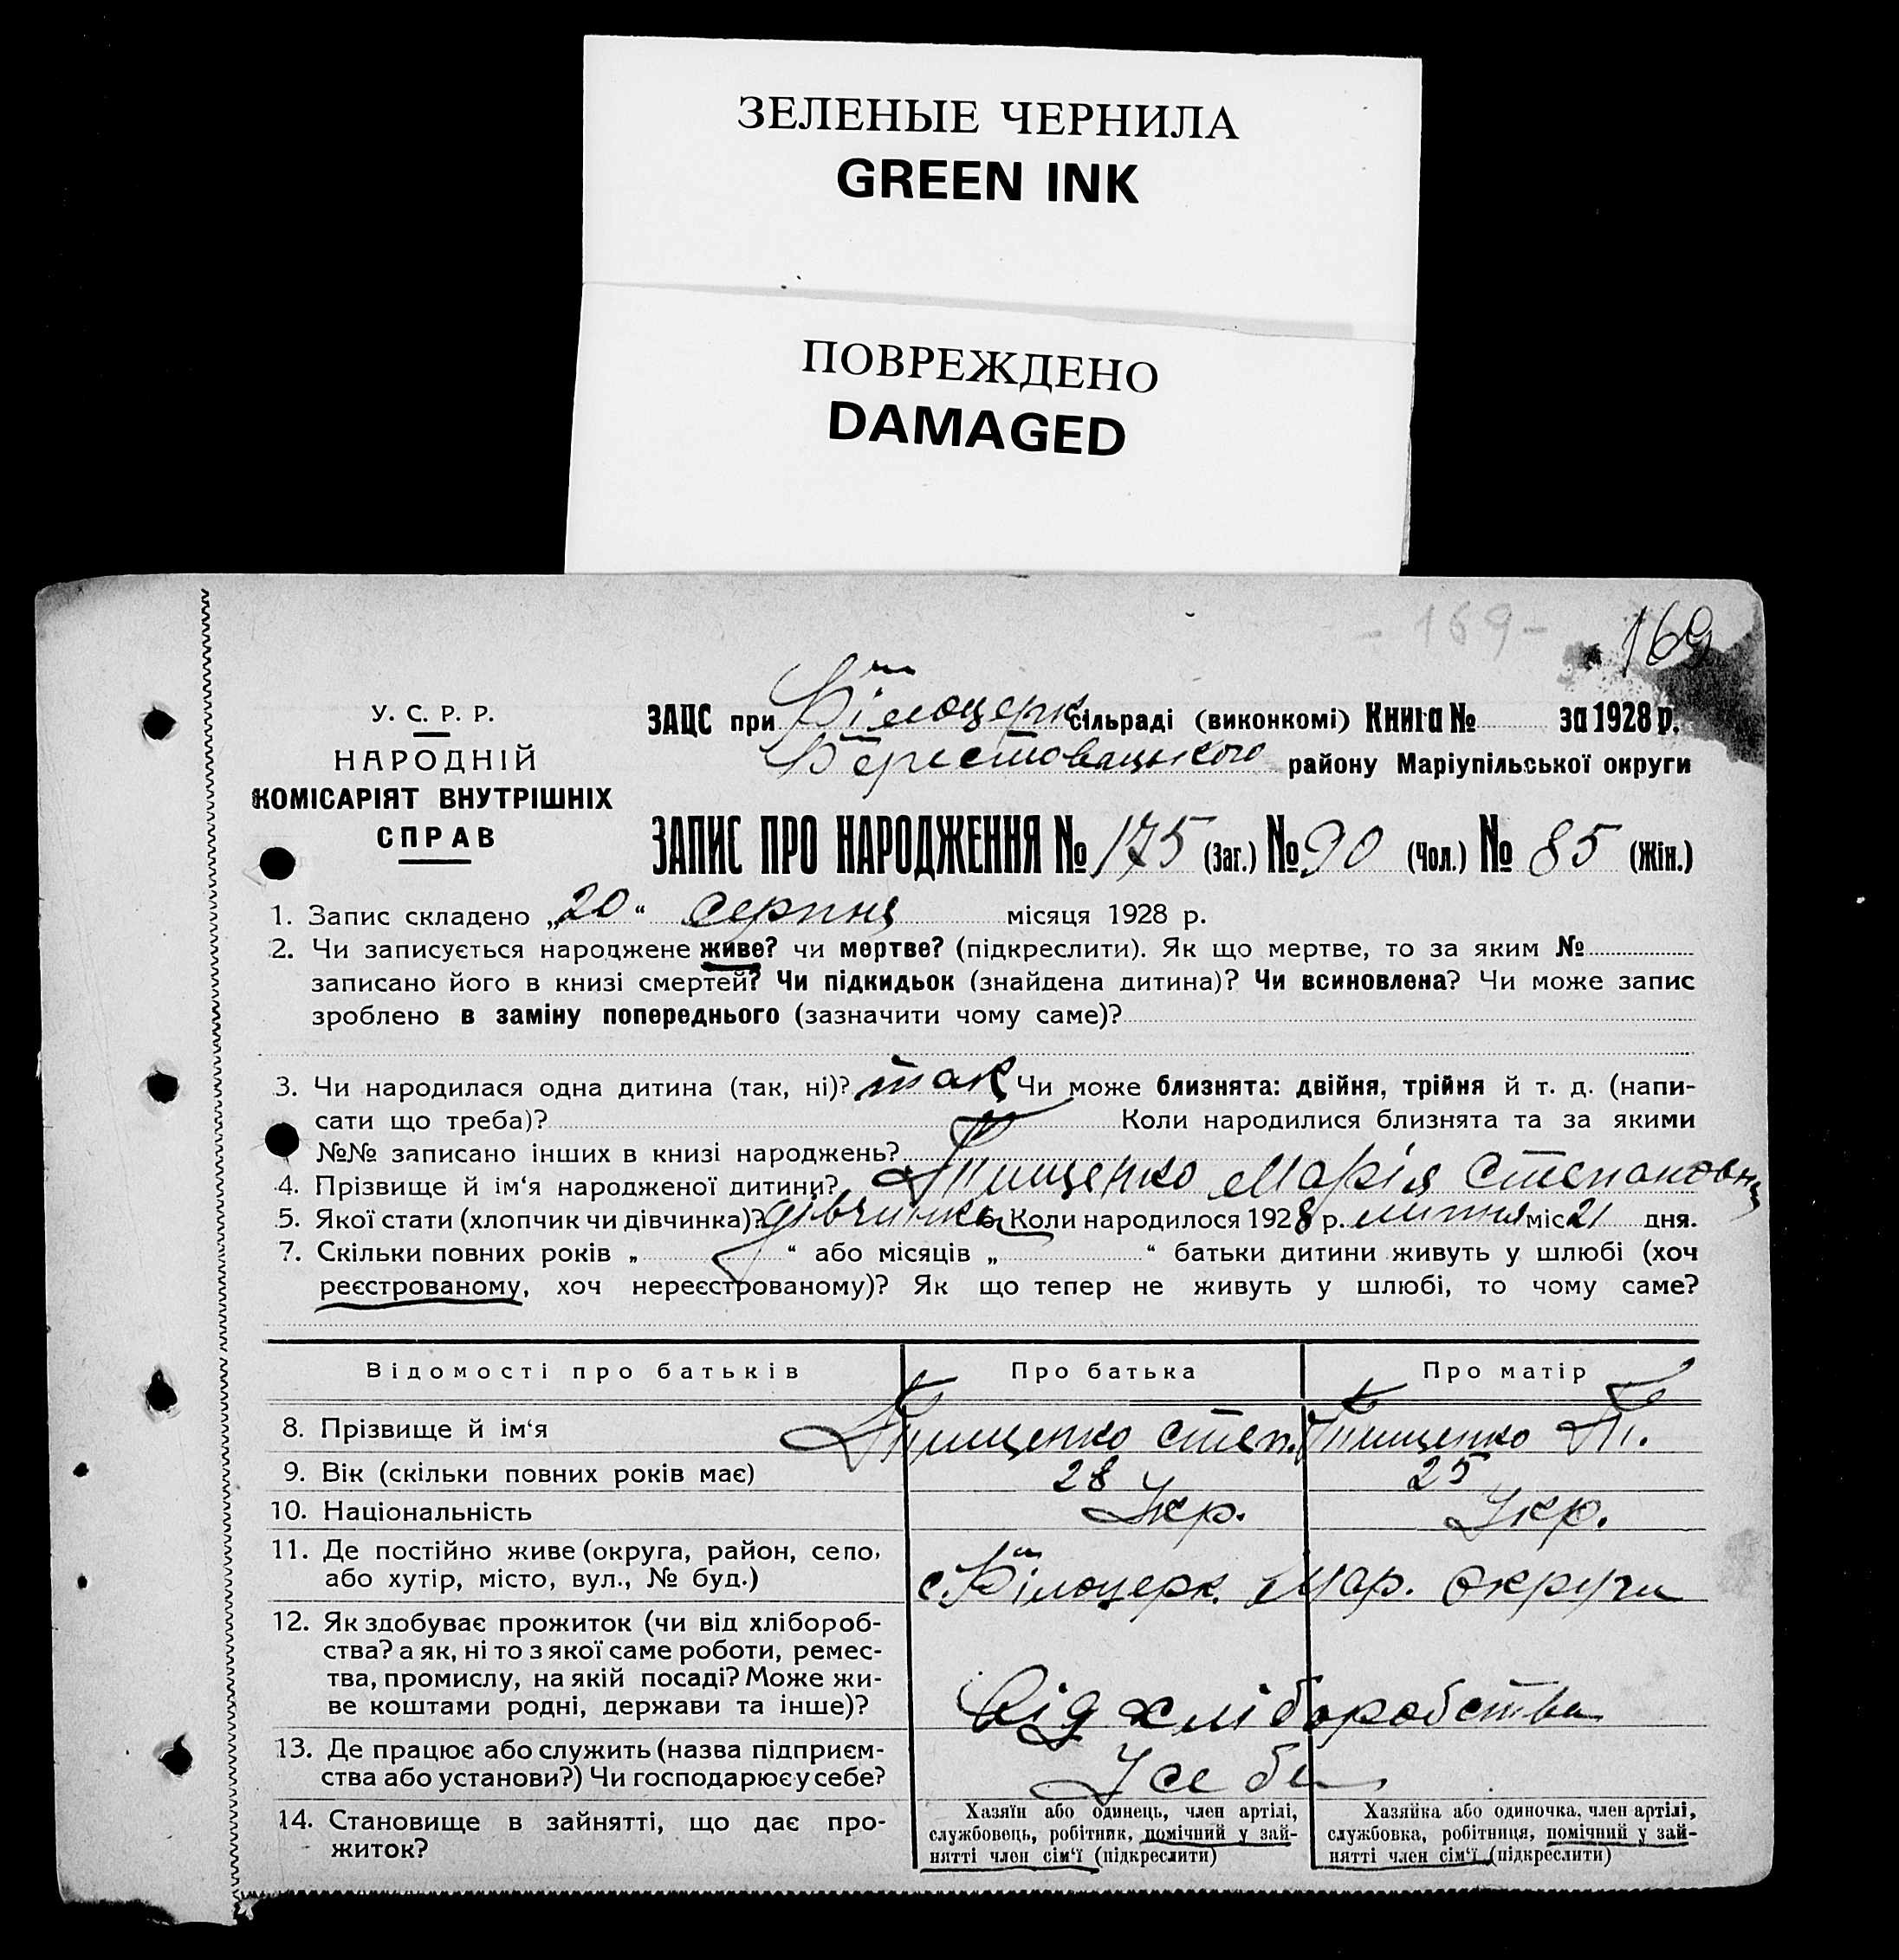 ЗЕЛЕНЫЕ ЧЕРНИЛА
GREEN INK
ПОВРЕЖДЕНО
DAMAGED
- 169 - 169
У. С. Р. Р.
НАРОДНІЙ
КОМІСАРІЯТ ВНУТРІШНІХ
СПРАВ
ЗАЦС при Білоцерк. сільраді (виконкомі) Книга № за 1928 р.
Берестовацького району Маріупільської округи
ЗАПИС ПРО НАРОДЖЕННЯ № 175 (Заг.) № 90 (Чол.) № 85 (Жін.)
1. Запис складено „20“ серпня місяця 1928 р.
2. Чи записується народжене живе? чи мертве? (підкреслити). Як що мертве, то за яким №
записано його в книзі смертей? Чи підкидьок (знайдена дитина)? Чи всиновлена? Чи може запис
зроблено в заміну попереднього (зазначити чому саме)?
3. Чи народилася одна дитина (так, ні)? так Чи може близнята: двійня, трійня й т. д. (напи-
сати що треба)? Коли народилися близнята та за якими
№№ записано інших в книзі народжень?
4. Прізвище й ім‘я народженої дитини? Тищенко Марія Степановна
5. Якої стати (хлопчик чи дівчинка)? дівчинка 6. Коли народилося 1928 р. липня міс 21 дня.
7. Скільки повних років „ “ або місяців „ “ батьки дитини живуть у шлюбі (хоч
реєстрованому, хоч нереєстрованому)? Як що тепер не живуть у шлюбі, то чому саме?
Відомості про батьків Про батька Про матір
8. Прізвище й ім‘я Тищенко Степ. Тищенко П.
9. Вік (скільки повних років має) 28 25
10. Національність Укр. Укр.
11. Де постійно живе (округа, район, село,
або хутір, місто, вул., № буд.) с. Білоцерк. Мар. округи
12. Як здобуває прожиток (чи від хлібороб-
ства? а як, ні то з якої саме роботи, ремес-
тва, промислу, на якій посаді? Може жи-
ве коштами родні, держави та інше)? Від хліборобства
13. Де працює або служить (назва підприєм-
ства або установи?) Чи господарює у себе? У себе
14. Становище в зайнятті, що дає про-
житок?
Хазяїн або одинець, член артілі,
службовець, робітник, помічний у зай-
нятті член сім‘ї (підкреслити)
Хазяйка або одиночка, член артілі,
службовка, робітниця, помічний у зай-
нятті член сім‘ї (підкреслити)